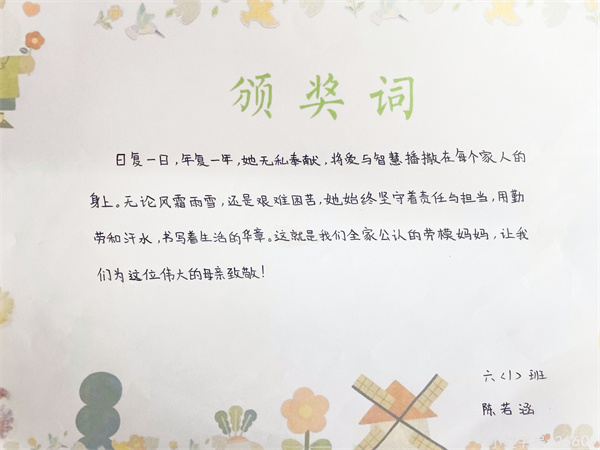 颁奖词
日复一日,年复一年,她无私奉献,将爱与智慧播撒在每个家人的
身上。无论风霜雨雪,还是艰难困苦,她始终坚守着责任与担当,用勤
劳和汗水,书写着生活的华章。这就是我们全家公认的劳模妈妈,让我
们为这位伟大的母亲致敬!
六〈1〉班
陈若涵